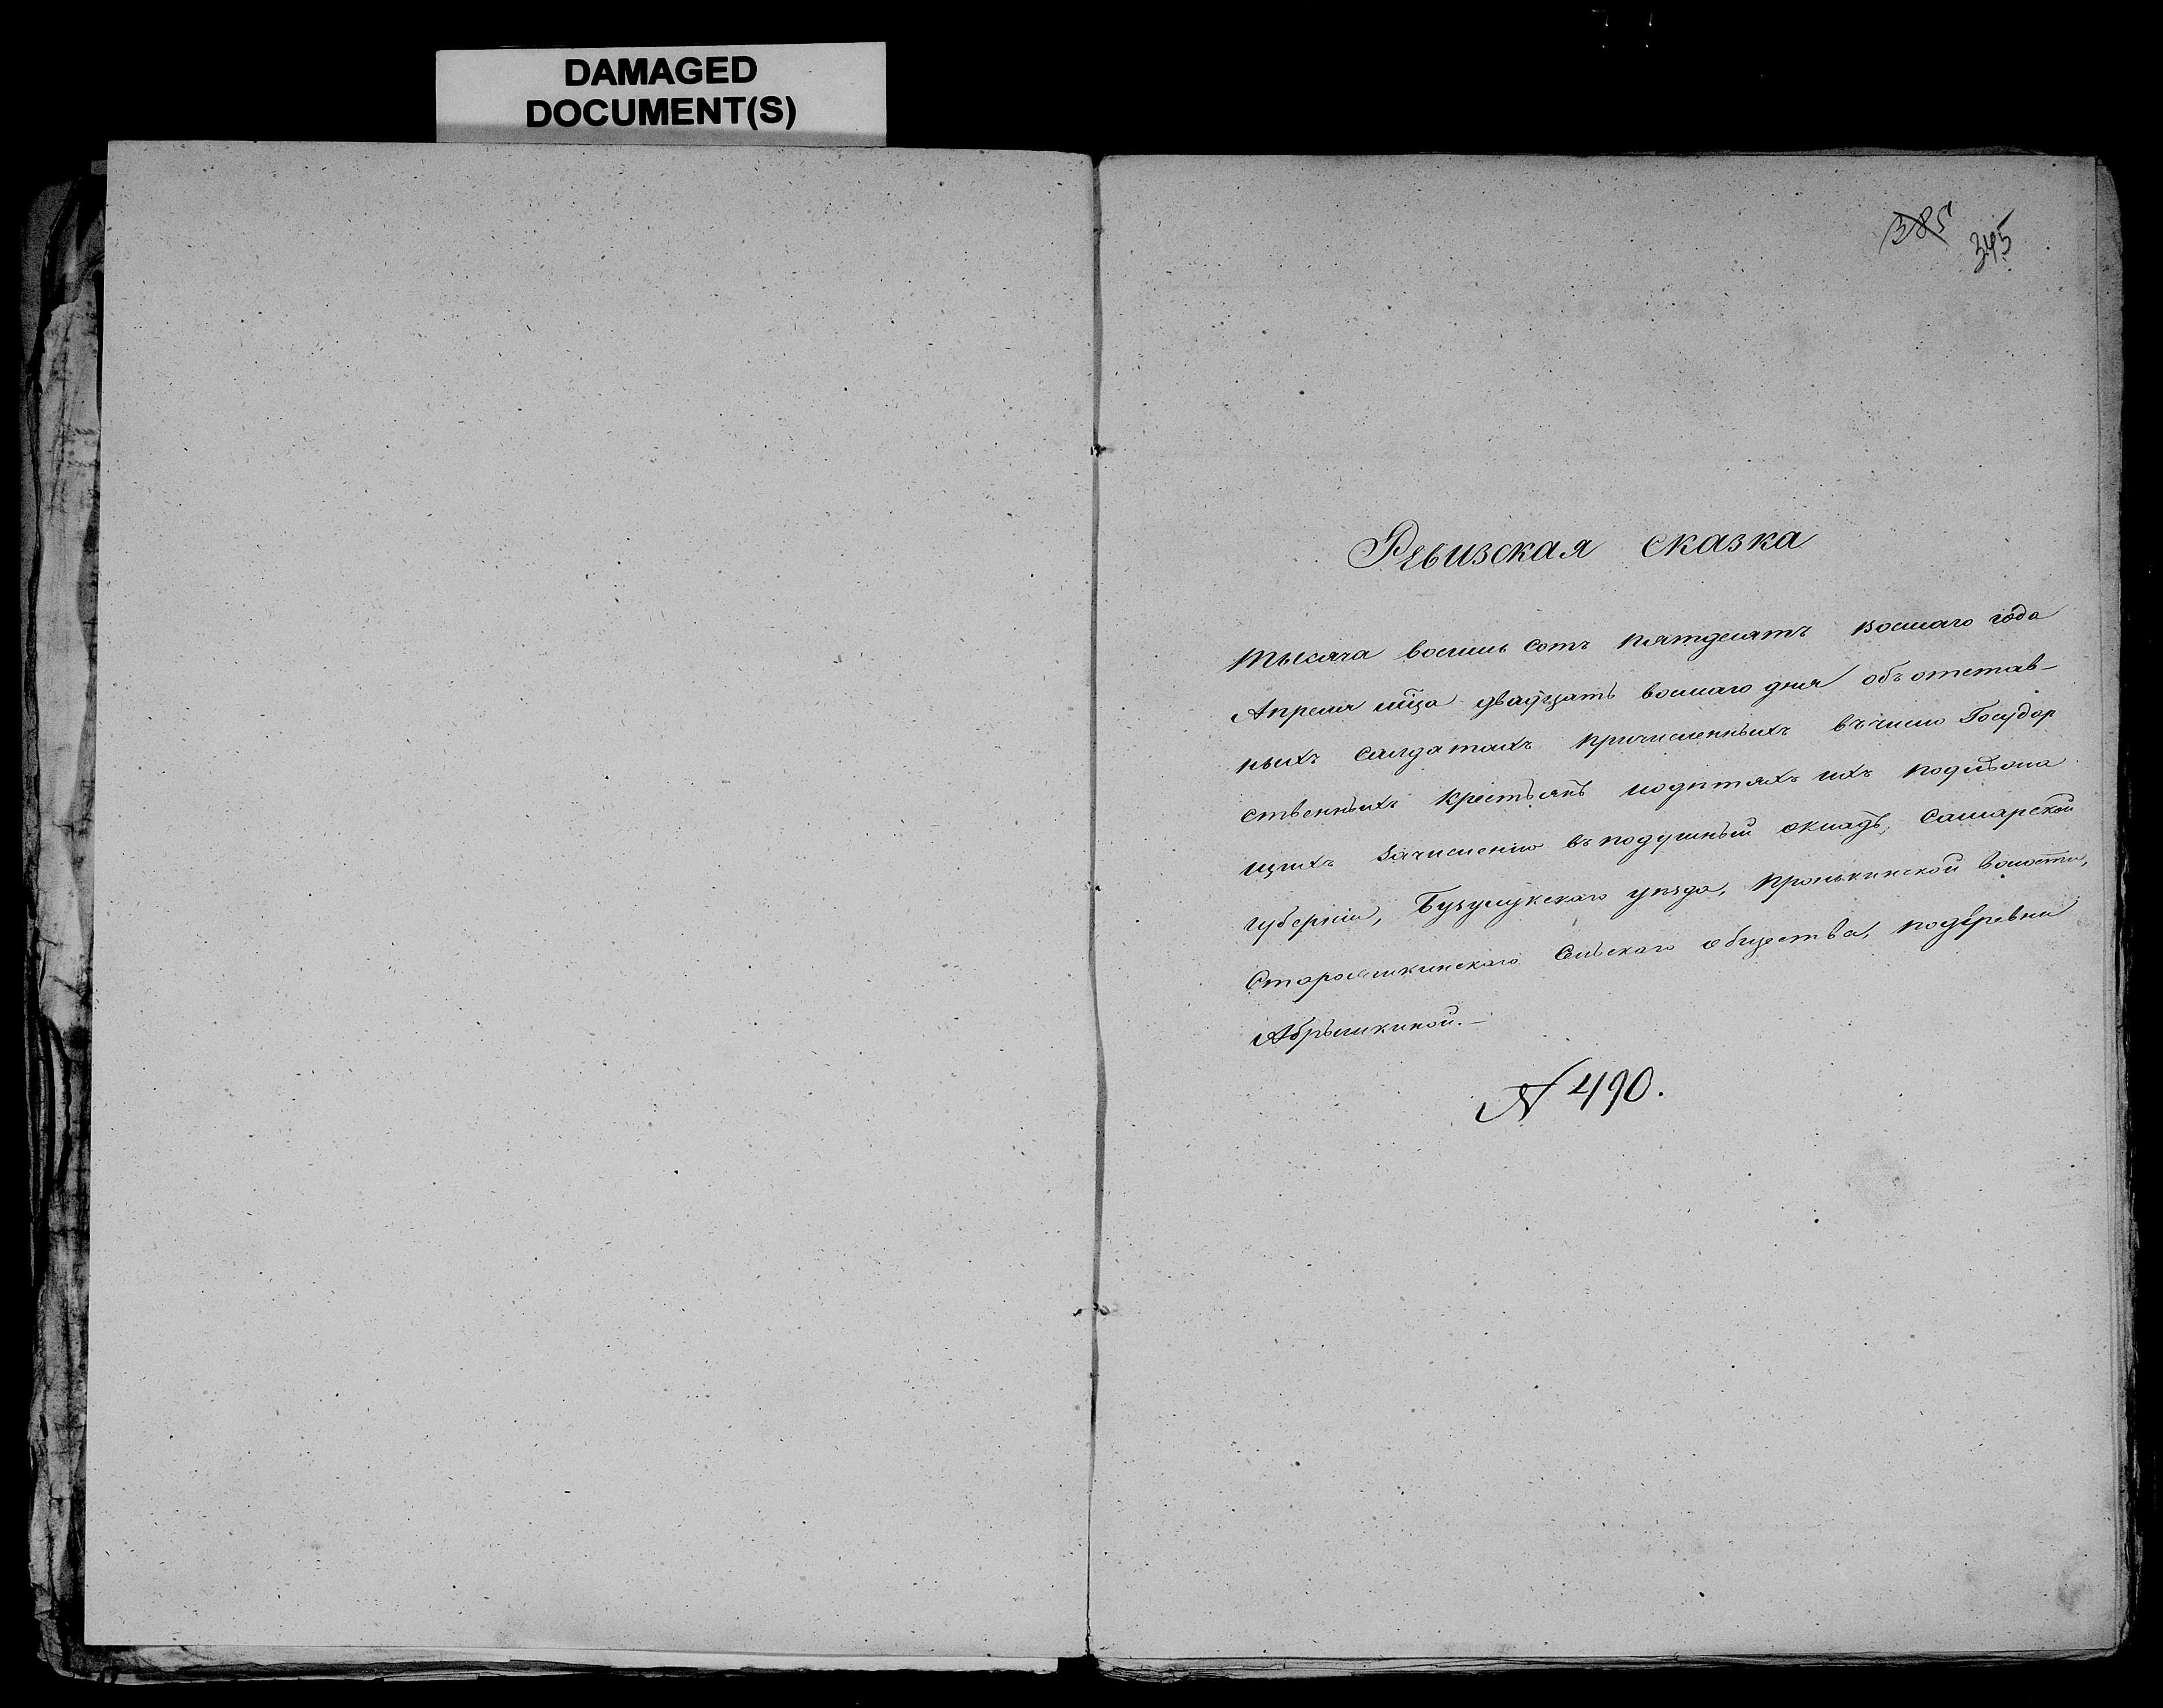 DAMAGED
DOCUMENT(S)
385
345
Ревизская сказка
Тысяча восемь сотъ пятдесятъ восмаго года
Апреля мца двадцать восмаго дня объ отстав-
ныхъ салдатахъ причисленныхъ въ число Государ
ственныхъ крестьянъ идѣтяхъ ихъ подлежа
щихъ зачислению въ подушный окладъ, Самарской
губерніи, Бузулукскаго уѣзда, Пронькинской волости,
Сельскаго общества, подеревни
Абрышкиной.—
N 490.